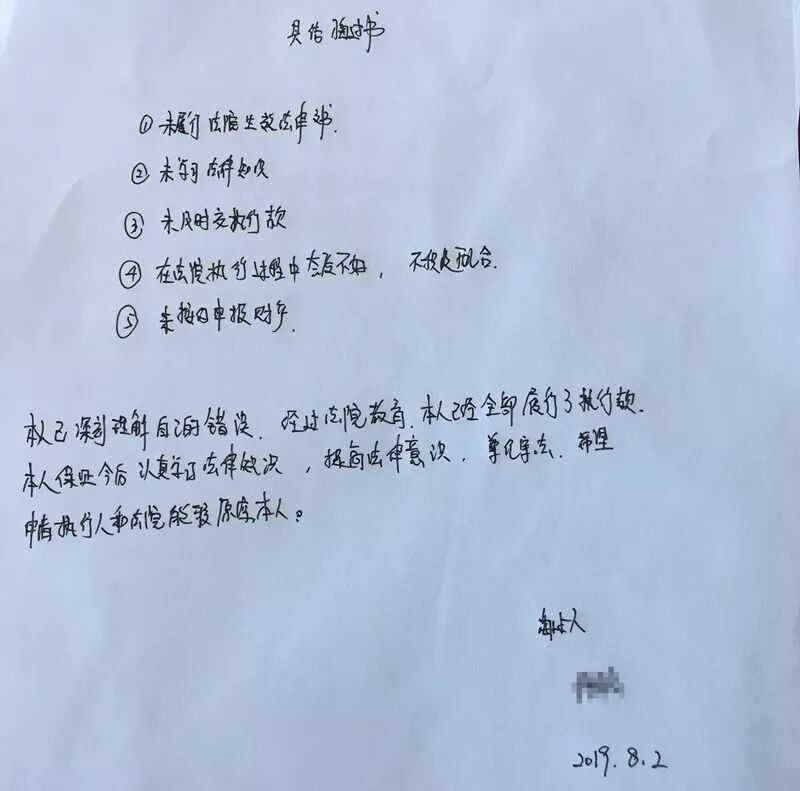 具结悔过书
① 未履行法院生效法律文书.
② 未学习法律知识
③ 未及时交执行款
④ 在法院执行过程中态度不好, 不积极配合.
⑤ 未按时申报财产.
本人已深刻理解自己的错误. 经过法院教育. 本人已经全部履行了执行款.
本人保证今后认真学习法律知识, 提高法律意识, 遵纪守法. 希望
申请执行人和法院能够原谅本人。
悔过人
2019.8.2